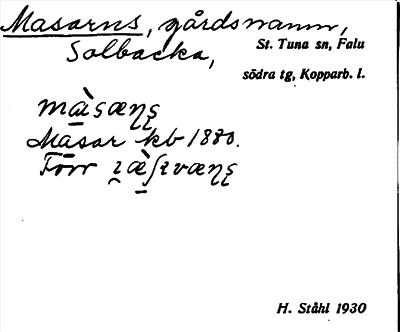 Masarns, gårdsnamn,
Solbacka, St. Tuna sn, Falu
södra tg, Kopparb. l.
màsæꞃȿ
Masar kb 1880.
Förr
H. Ståhl 1930